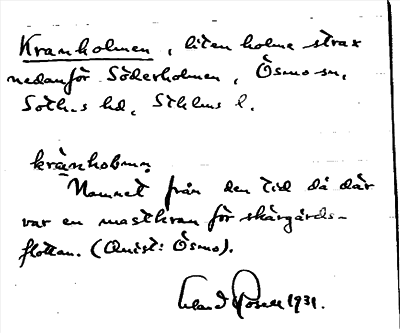 Kranholmen, liten holme strax
nedanför Söderholmen, Ösmo sn,
Soth-s hd, Sthlms l.
krànholmən
Namnet från den tid då där
var en mastkran för skärgårds-
flottan. (Quist: Ösmo).
Erland Rosell 1931.